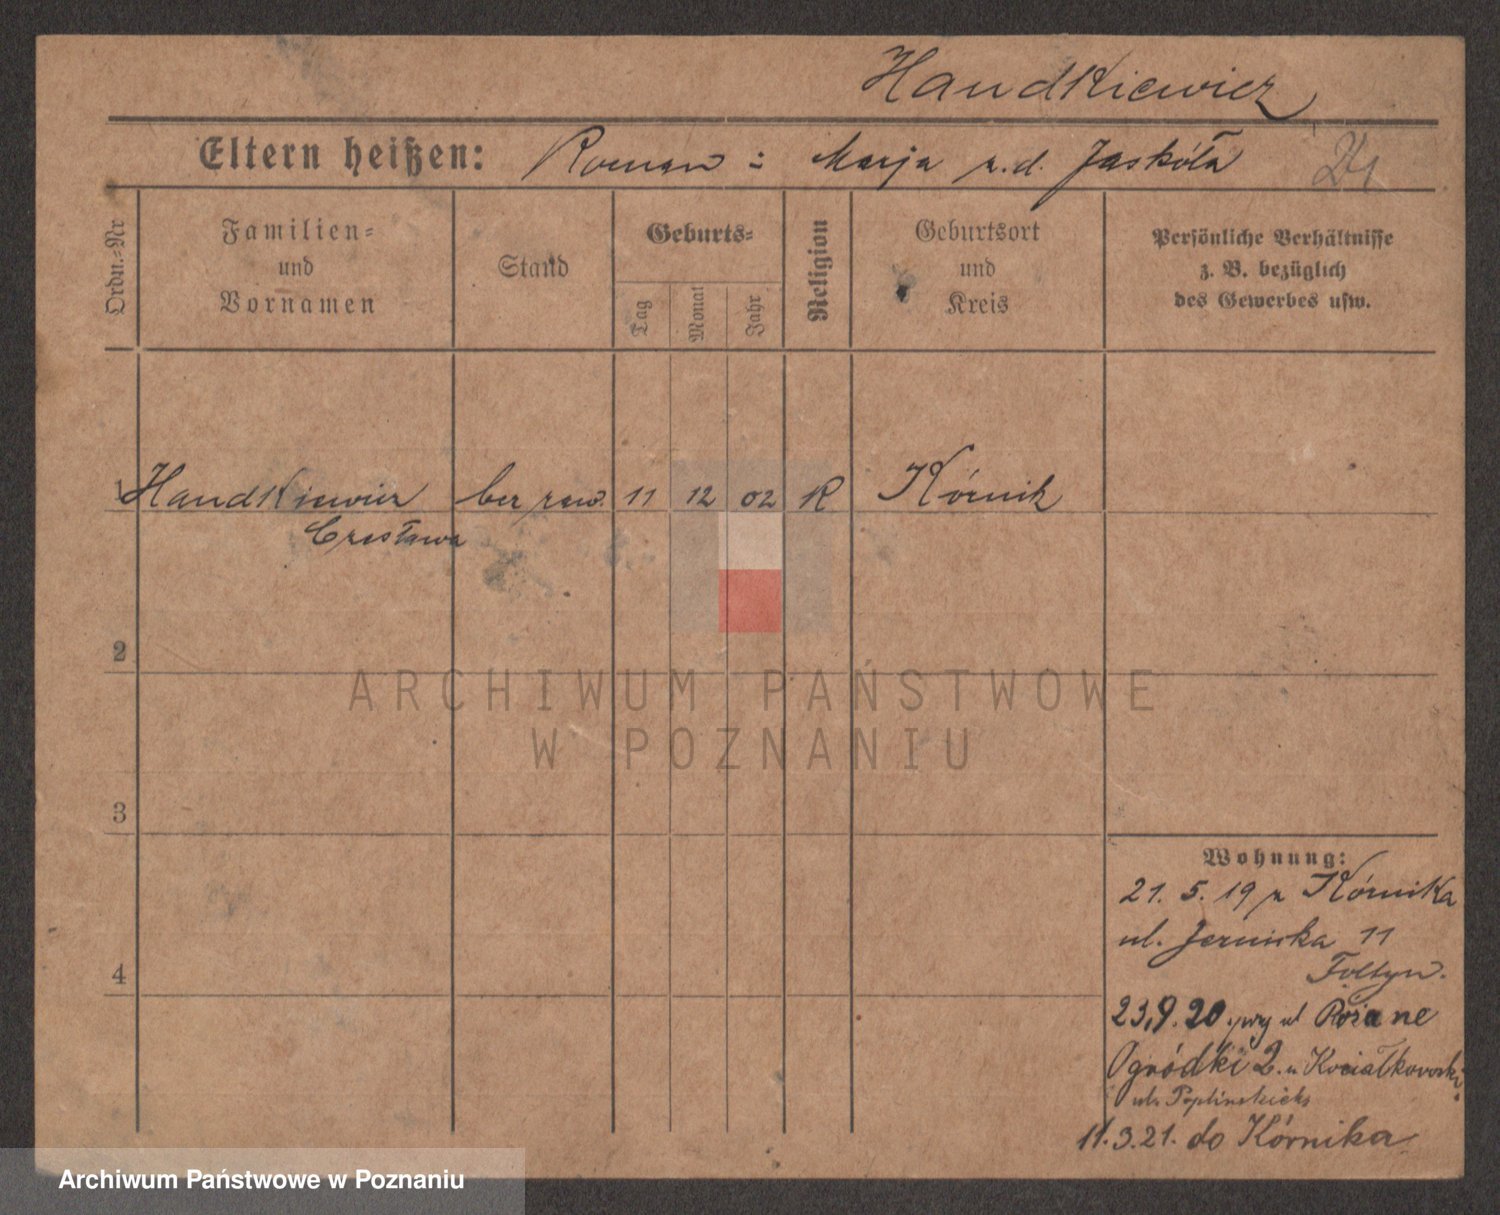 Handkiewicz
Eltern heißen: Roman : Marja z.d. Jaskóła
Ordn.-Nr
Familien-
und
Vornamen
Stand
Geburts-
Tag
Monat
Jahr
Religion
Geburtsort
und
Kreis
Persönliche Verhältnisse
z. B. bezüglich
des Gewerbes usw.
1 Handkiewicz bez zaw. 11 12 02 R Kórnik
Czesława
2
ARCHIWUM PAŃSTWOWE
W POZNANIU
3
4
Wohnung:
21. 5. 19 z Kórnika
ul. 11
23,9.20 przy ul Różane
Ogródki 2. u Kociałkowski
11.3.21. do Kórnika
Archiwum Państwowe w Poznaniu